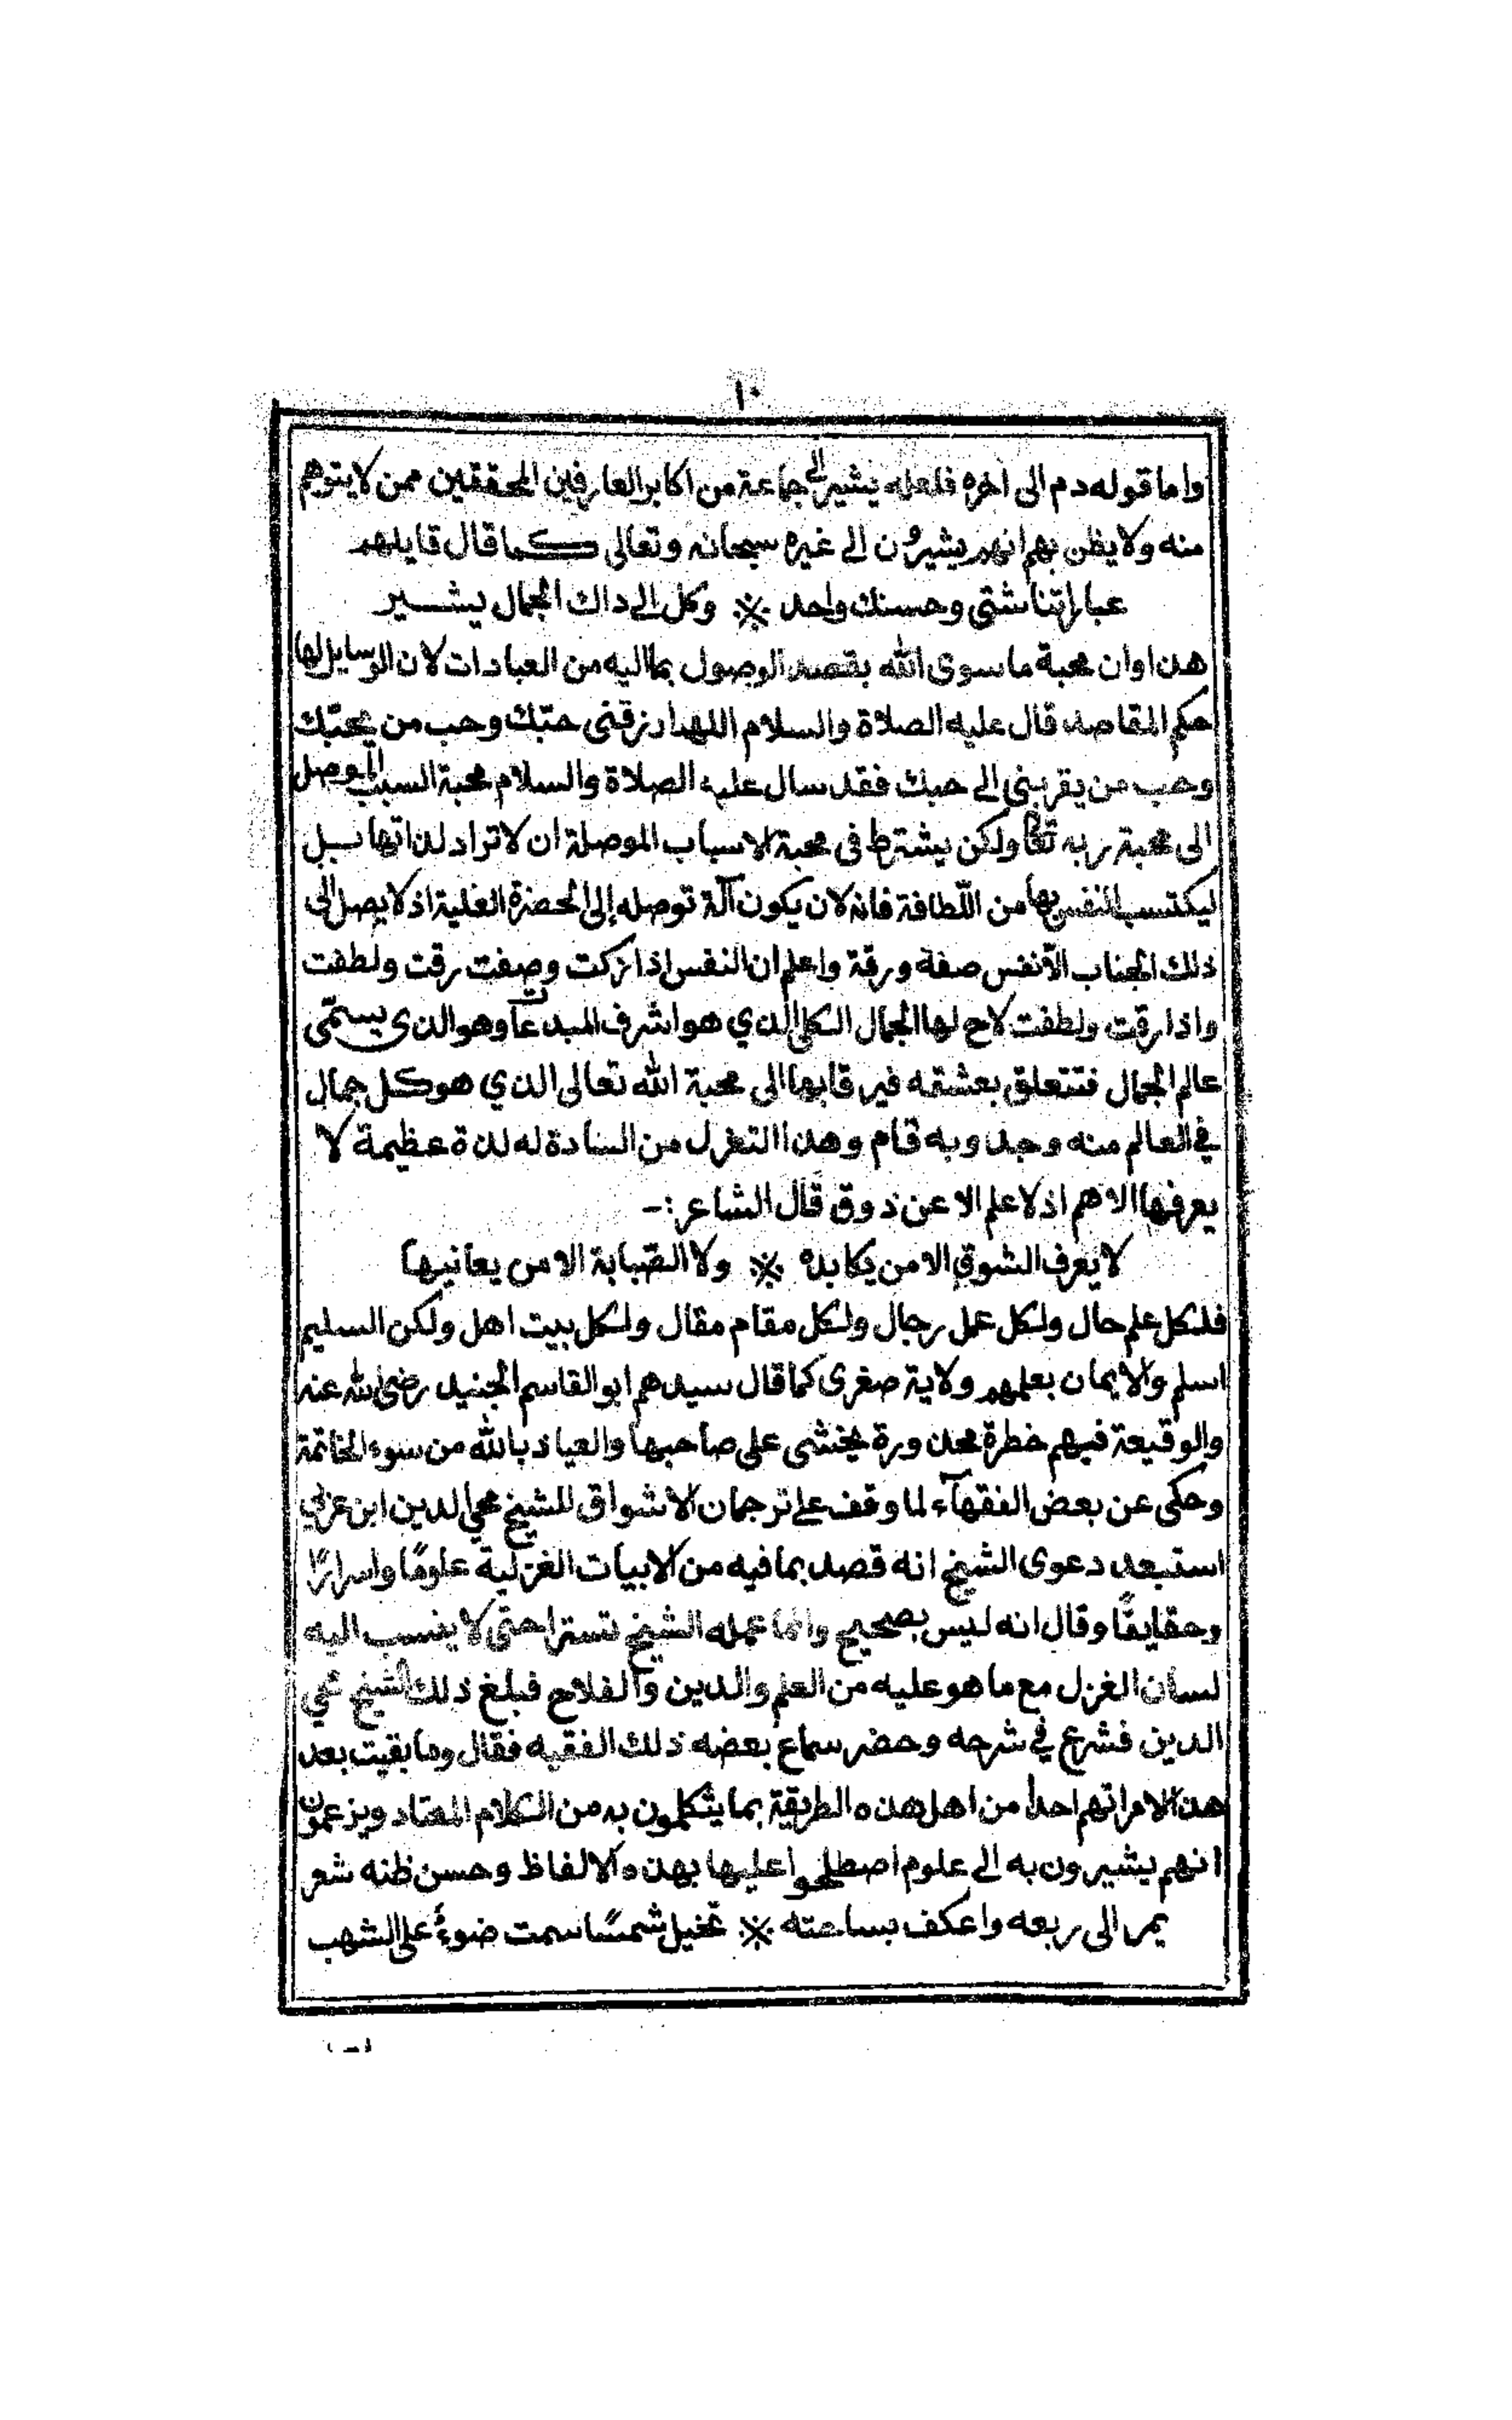 ١٠
واما قوله دم الى اخره فلعله يشير الى جماعة من اكابر العارفين المحققين ممن لا يتوهم
منه ولا يظن بهم انهم يشيرون الى غيره سبحانه وتعالى كما قال قايلهم
عباراتنا شتى وحسنك واحد ※ وكل الى داك الجمال يشير
هذا وان محبة ما سوى الله بقصد الوصول بها اليه من العبادات لان الوسايل لها
حكم المقاصد قال عليه الصلاة والسلام اللهم ارزقنى حبّك وحب من يحبّك
وحب من يقربنى الى حبك فقد سال عليه الصلاة والسلام محبة السبب الموصل
الى محبة ربه تعالى ولكن يشترط فى محبة الاسباب الموصلة ان لا تراد لذاتها بل
ليكتسب النفس بها من اللّطافة فانه لان يكون آلة توصله إلى الحضرة العلية اذ لا يصل الى
ذلك الجناب الأنفس صفة ورقة واعلم ان النفس اذا زكت وصفت رقت ولطفت
واذا رقت ولطفت لاح لها الجمال الكلى الذي هو اشرف المبدعات وهو الذى يسمّى
عالم الجمال فتتعلق بعشقه فيرقا بها الى محبة الله تعالى الذي هو كل جمال
في العالم منه وجد وبه قام وهذا التغزل من السادة له لذة عظيمة لا
يعرفها الا هم اذ لا علم الا عن ذوق قال الشاعر :-
لا يعرف الشوق الا من يكابده ※ ولا الصّبابة الا من يعانيها
فلكل علم حال ولكل عمل رجال ولكل مقام مقال ولكل بيت اهل ولكن السليم
اسلم والايمان بعلمهم ولاية صغرى كما قال سيدهم ابو القاسم الجنيد رضى الله عنه
والوقيعة فيهم خطرة محذورة يخشى على صاحبها والعياذ بالله من سوء الخاتمة
وحكى عن بعض الفقهآء لما وقف على ترجمان الاشواق للشيخ محي الدين ابن عربي
استبعد دعوى الشيخ انه قصد بما فيه من الابيات الغزلية علومًا واسرارًا
وحقايقًا وقال انه ليس بصحيح وانما عمله الشيخ تسترا حتى لا ينسب اليه
لسان الغزل مع ما هو عليه من العلم والدين والفلاح فبلغ ذلك الشيخ محي
الدين فشرع في شرحه وحضر سماع بعضه ذلك الفقيه فقال وما بقيت بعد
هذا الامر اتهم احدا من اهل هذه الطريقة بما يتكلمون به من الكلام المعتاد ويزعمون
انهم يشيرون به الى علوم اصطلحوا عليها بهذه الالفاظ وحسن ظنه شعر
يمر الى ربعه واعكف بساحته ※ تخيل شمسًا سمت ضوءً على الشهب